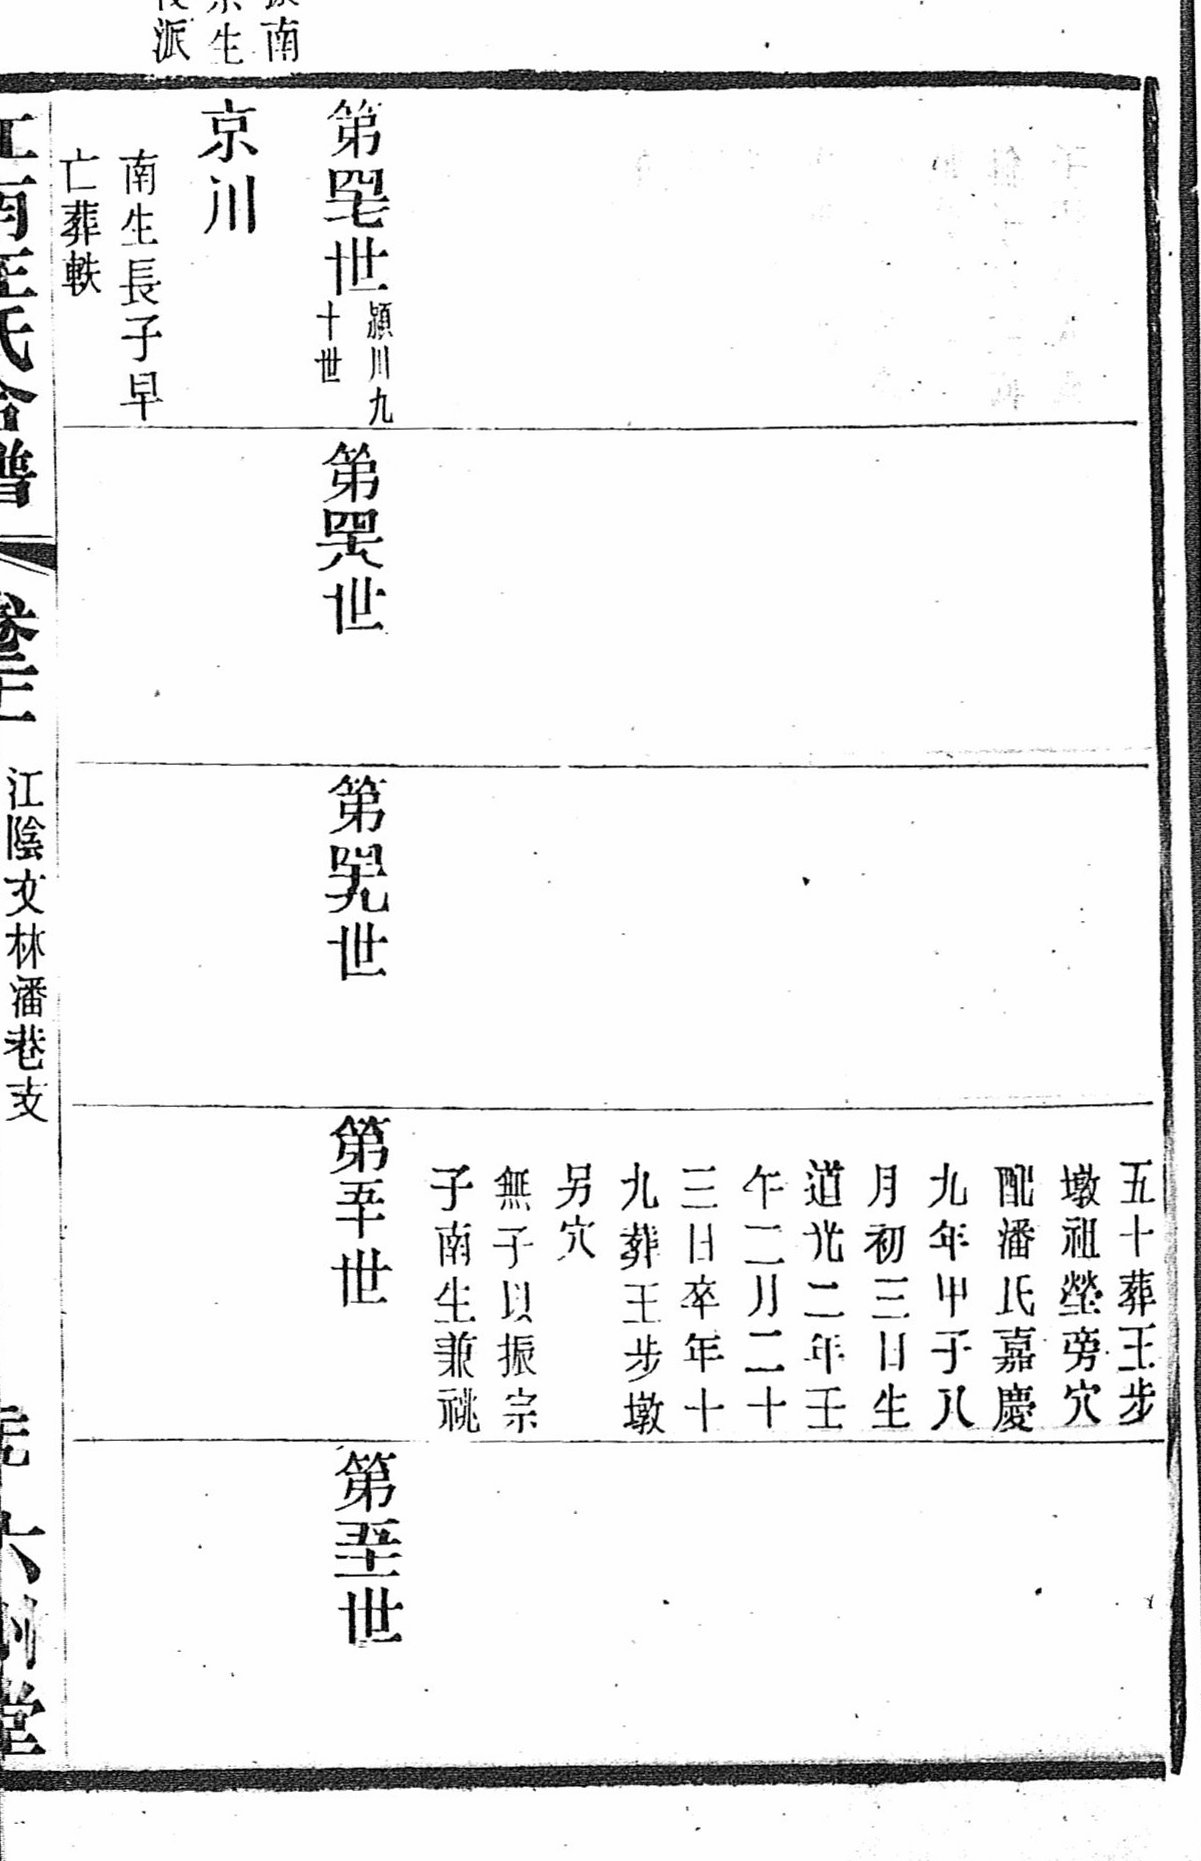 南
生
派
五十葬王步
墩祖塋旁穴
配潘氏嘉慶
九年甲子八
月初三日生
道光二年壬
午二月二十
三日卒年十
九葬王步墩
另穴
無子以振宗
子南生兼祧
第四十七世
潁川九
十世
第四十八世
第四十九世
第五十世
第五十一世
京川
南生長子早
亡葬軼
江南王氏合譜
江陰文林潘巷支